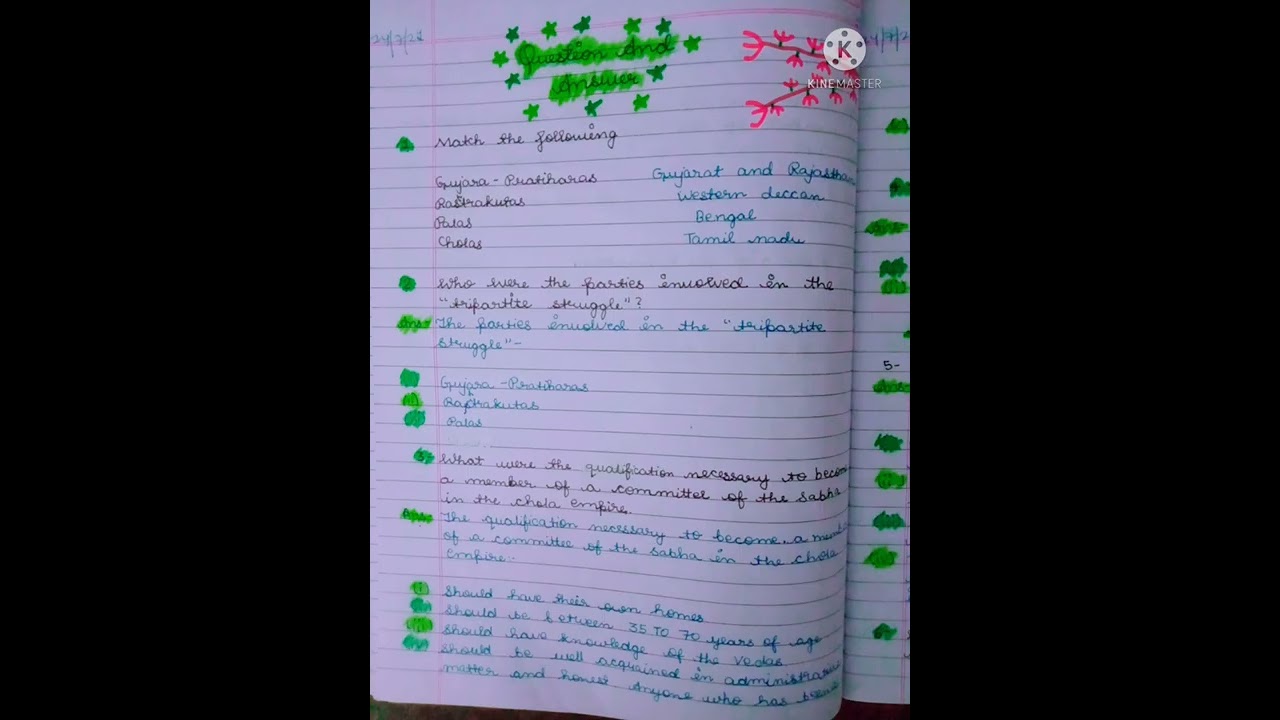 24/7/21
Question And
Answer
KINEMASTER
1 Match the following
Gujara - Pratiharas Gujarat and Rajasthan
Rastrakutas Western deccan
Palas Bengal
Cholas Tamil nadu
2 Who were the parties involved in the
"tripartite struggle"?
Ans- The parties involved in the "tripartite
struggle"-
Gujara - Pratiharas
(ii) Raptrakutas
Palas
3- What were the qualification necessary to become
a member of a committee of the sabha
in the chola empire.
Ans- The qualification necessary to become a
of a committee of the sabha in the chola
empire:-
(i) should have their own homes
should be between 35 TO 70 years of age
(iii) should have knowledge of the vedas
should be well acquained in administrative
matter and honest Anyone who has
5-